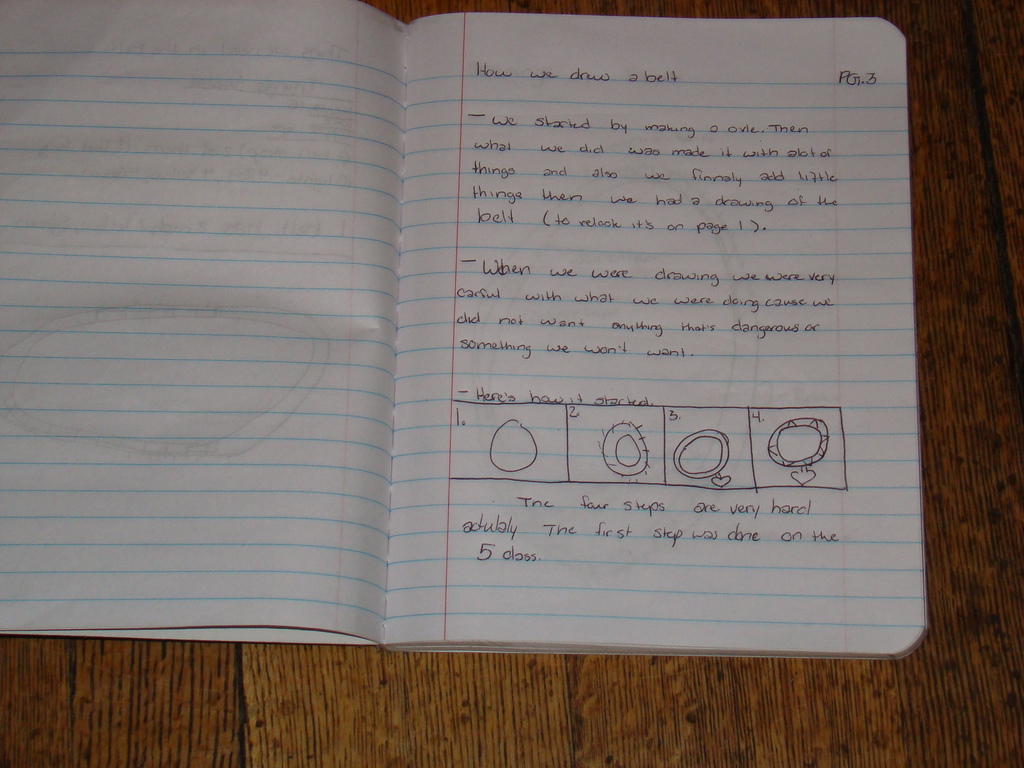 How we drew a belt
PG.3
- We started by making a ovle. Then
what we did was made it with alot of
things and also we finnaly add little
things then we had a drawing of the
belt (to relook it's on page 1).
- When we were drawing we were very
carful with what we were doing cause we
did not want anything that's dangerous or
something we won't want.
- Here's how it started.
1. 2. 3. 4.
The four steps are very hard
actubly The first step was done on the
5 class.